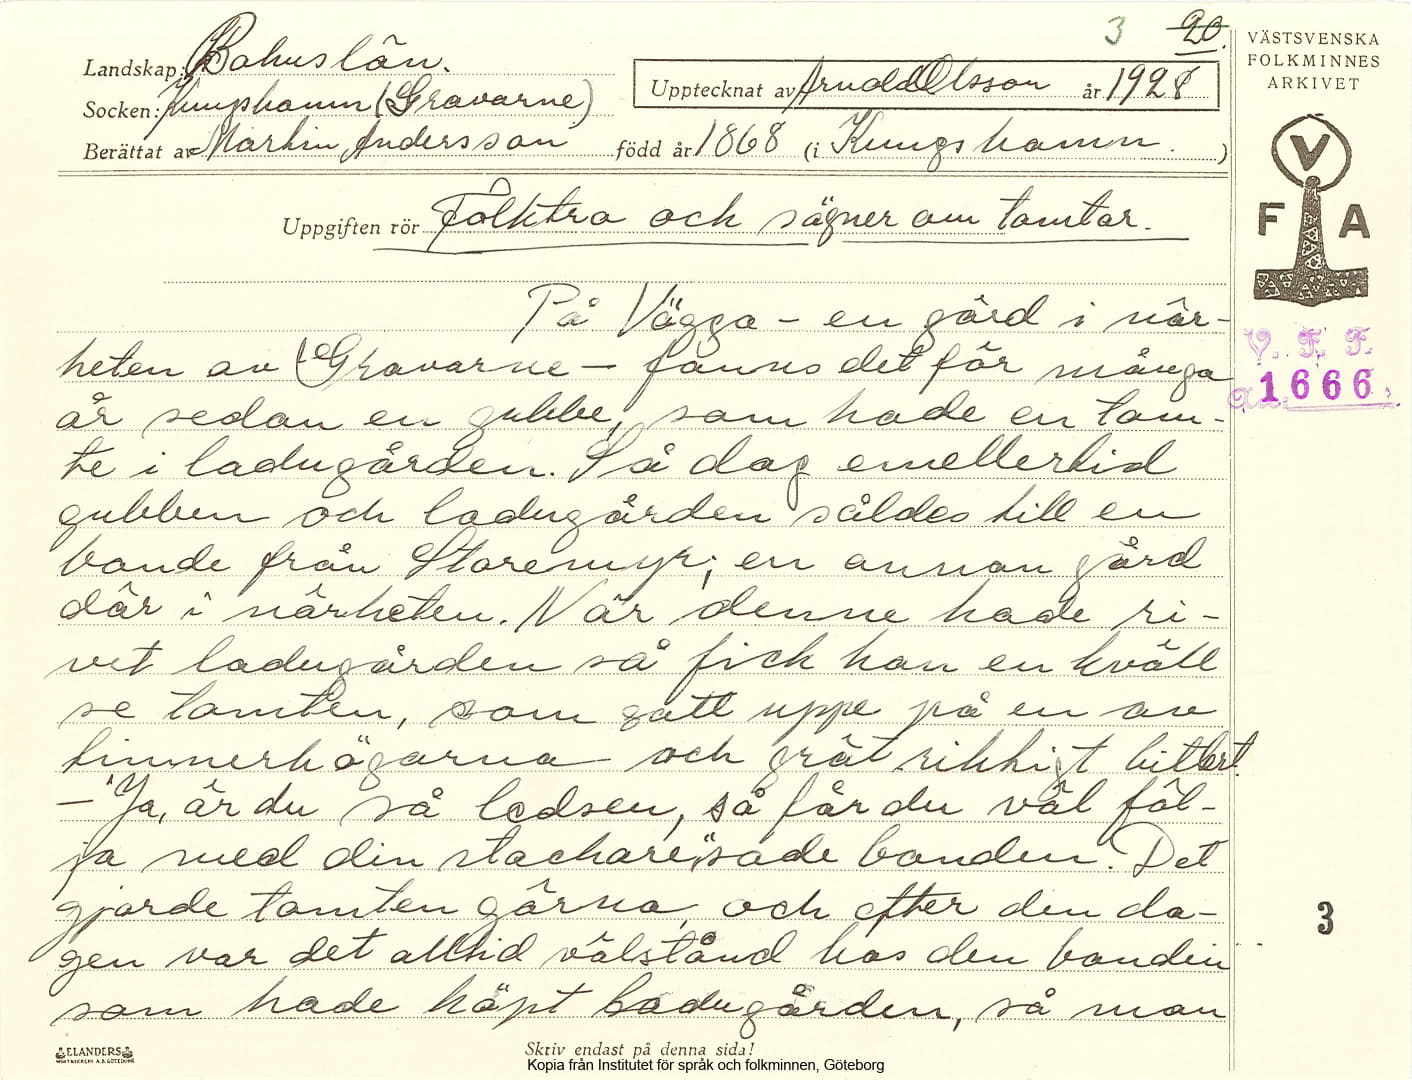 3 20.
Landskap: Bohuslän.
Socken: Kungshamn (Gravarne)
Berättat av Martin Andersson född år 1868 (i Kungshamn.)
Upptecknat av Arnold Olsson år 1928
VÄSTSVENSKA
FOLKMINNES
ARKIVET
V
F A
V. F. F.
1666.
Uppgiften rör Folktro och sägner om tomtar.
På Vägga – en gård i när-
heten av Gravarne – fanns det för många
år sedan en gubbe, som hade en tom-
te i ladugården. Så dog emellertid
gubben och ladugården såldes till en
bonde från Storemyr, en annan gård
där i närheten. När denne hade ri-
vet ladugården så fick han en kväll
se tomten, som satt uppe på en av
timmerhögarna och grät rikkigt bittert.
– "Ja, är du så ledsen, så får du väl föl-
ja med din stackare", sade bonden. Det
gjorde tomten gärna, och efter den da-
gen var det alltid välstånd hos den bonden
som hade köpt ladugården, så man
3
ELANDERS
Skriv endast på denna sida!
Kopia från Institutet för språk och folkminnen, Göteborg